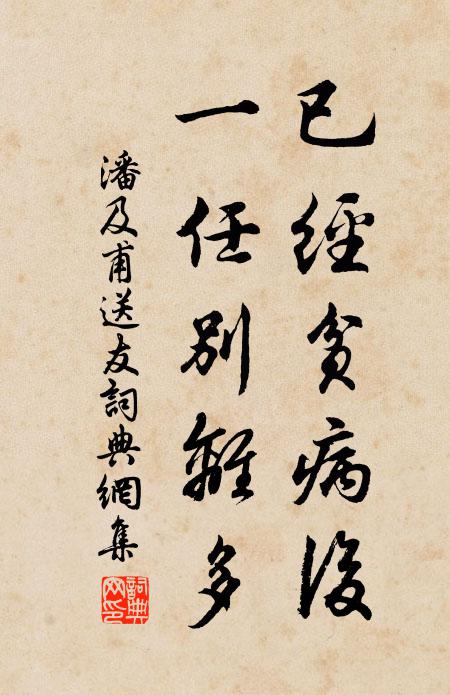 已經貧病後
一任別離多
潘及甫送友詞典網集
詞典網印